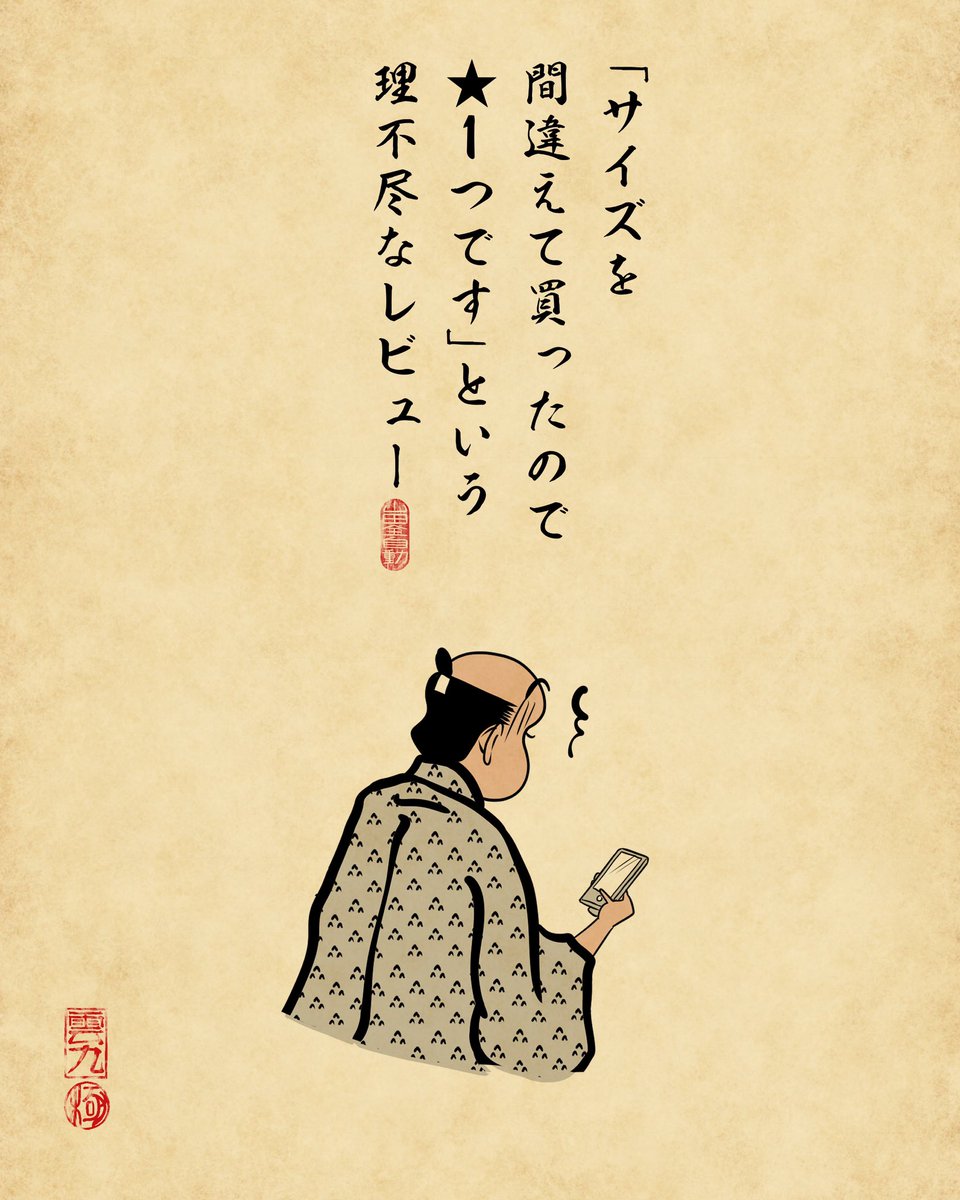 「サイズを
間違えて買ったので
★1つです」という
理不尽なレビュー